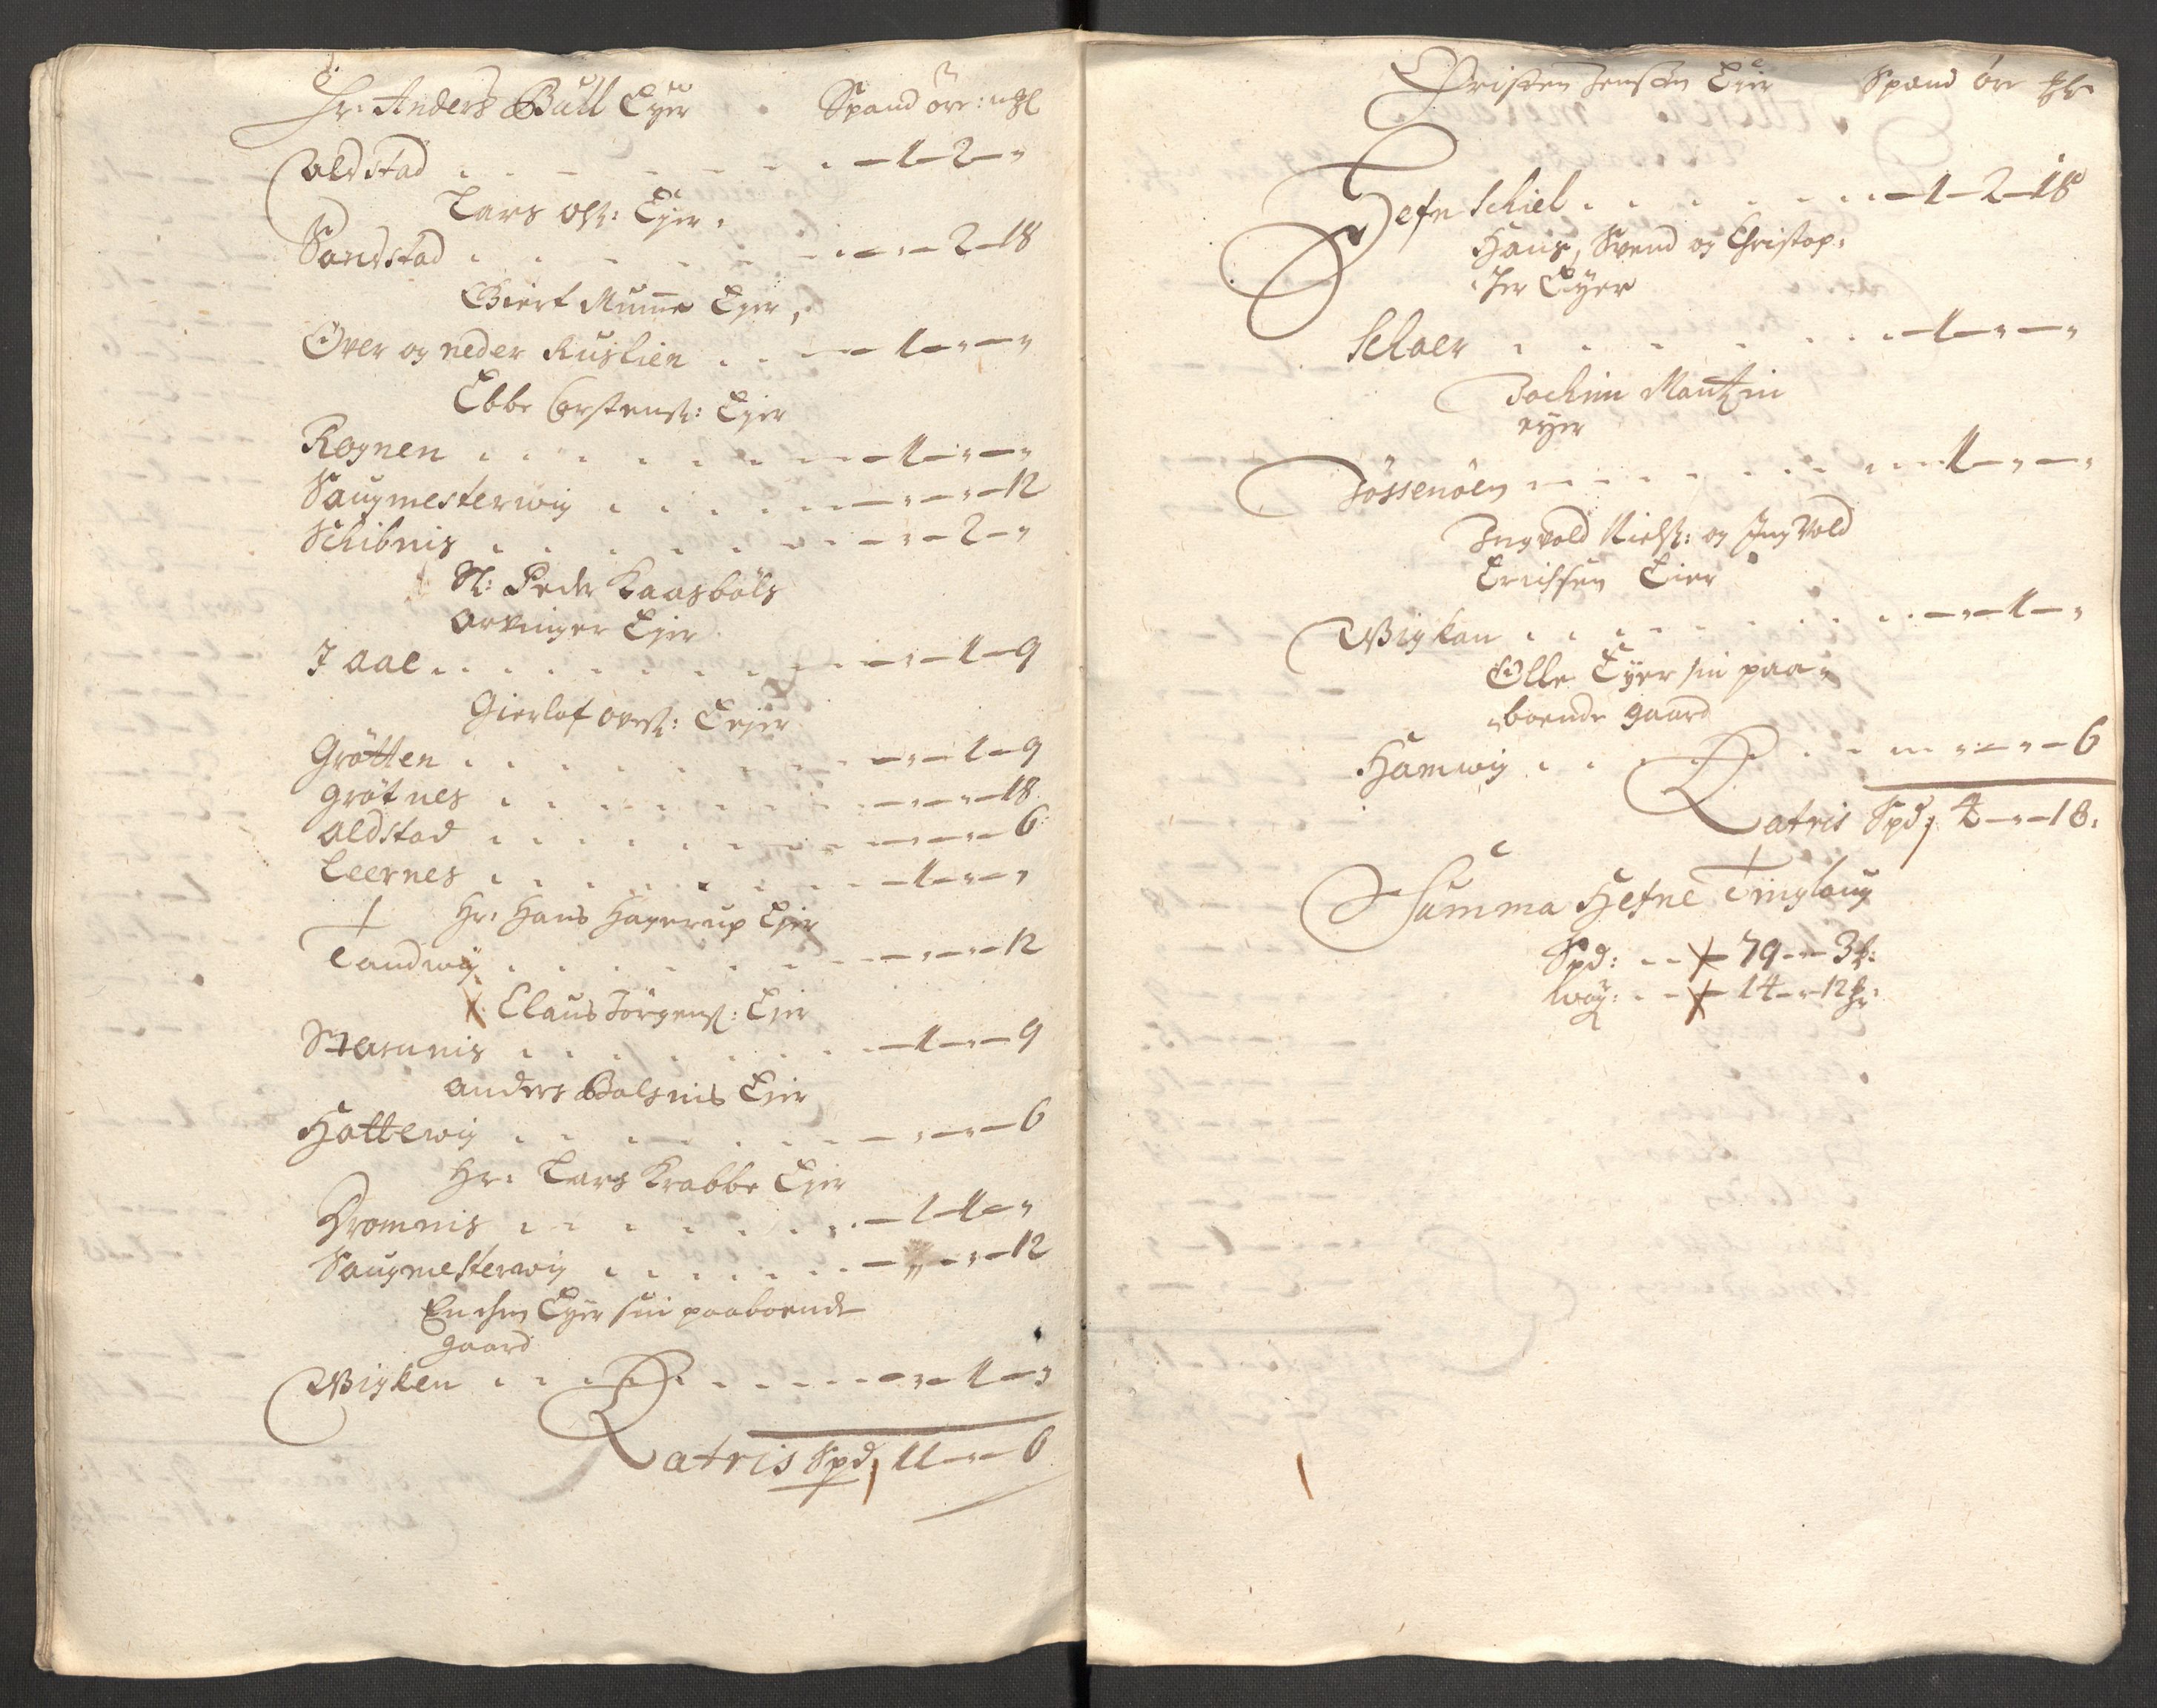 Hr: Anders Bull Eyer Spand öre: mgl
Aldstad . . . . . . . . — 1 — 2 — "
Lars Ols: Ejer.
Sandstad . . . . . . . . — " — 2 — 18
Giert Mume Ejer,
Over og neder Ruslien . . — 1 — " — "
Ebbe Corstens: Ejer
Rognen . . . . . . . . — 1 — " — "
Saugmesterwig . . . . . . — " — " — 12
Schibnis . . . . . . . — " — 2 — "
Sl: Peder Kaasböls
Arvinger Ejer
J Aae . . . . . . . . — " — 1 — 9
Gierlof Ovrs: Ejer
Grötten . . . . . . . . — " — 1 — 9
Grötnes . . . . . . . — " — " — 18
Aldstad . . . . . . . — " — " — 6
Leernes . . . . . . . . — 1 — " — "
Hr: Hans Hagerup Ejer
Tandwig . . . . . . . — " — " — 12
Claus Jörgens: Ejer
Stamnis . . . . . . . . — 1 — " — 9
Anders Balsnis Ejer
Hattewig . . . . . . . — " — " — 6
Hr: Lars Krabbe Ejer
Dromnis . . . . . . . — 1 — 1 — "
Saugmesterwig . . . . . . — " — " — 12
Enchen Eyer sin paaboende
gaard
Wigken . . . . . . . . — " — 1 — "
Latris Spd, 11 — " — 6
Christen Jensen Ejer Spand öre
Hefn Schiel . . . . . . . — 1 — 2 — 18
Hans, Svend og Christop:
:her Eyer
Selaer . . . . . . . — 1 — " — "
Jochim Mantzin
eyer
Jössenöen . . . . . . . — 1 — " — "
Ingvold Niels: og Ingvold
Erichsen Eier
Wigkan . . . . . . . . — " — 1 — "
Olle Eyer sin paa-
boende gaard
Hamwig . . . . . . — " — " — 6
Latris Spd, 4 — " — 18.
Summa Hefne Tinglaug
Spd: - - 79 - " - 3
wog: - - 14 - " - 12